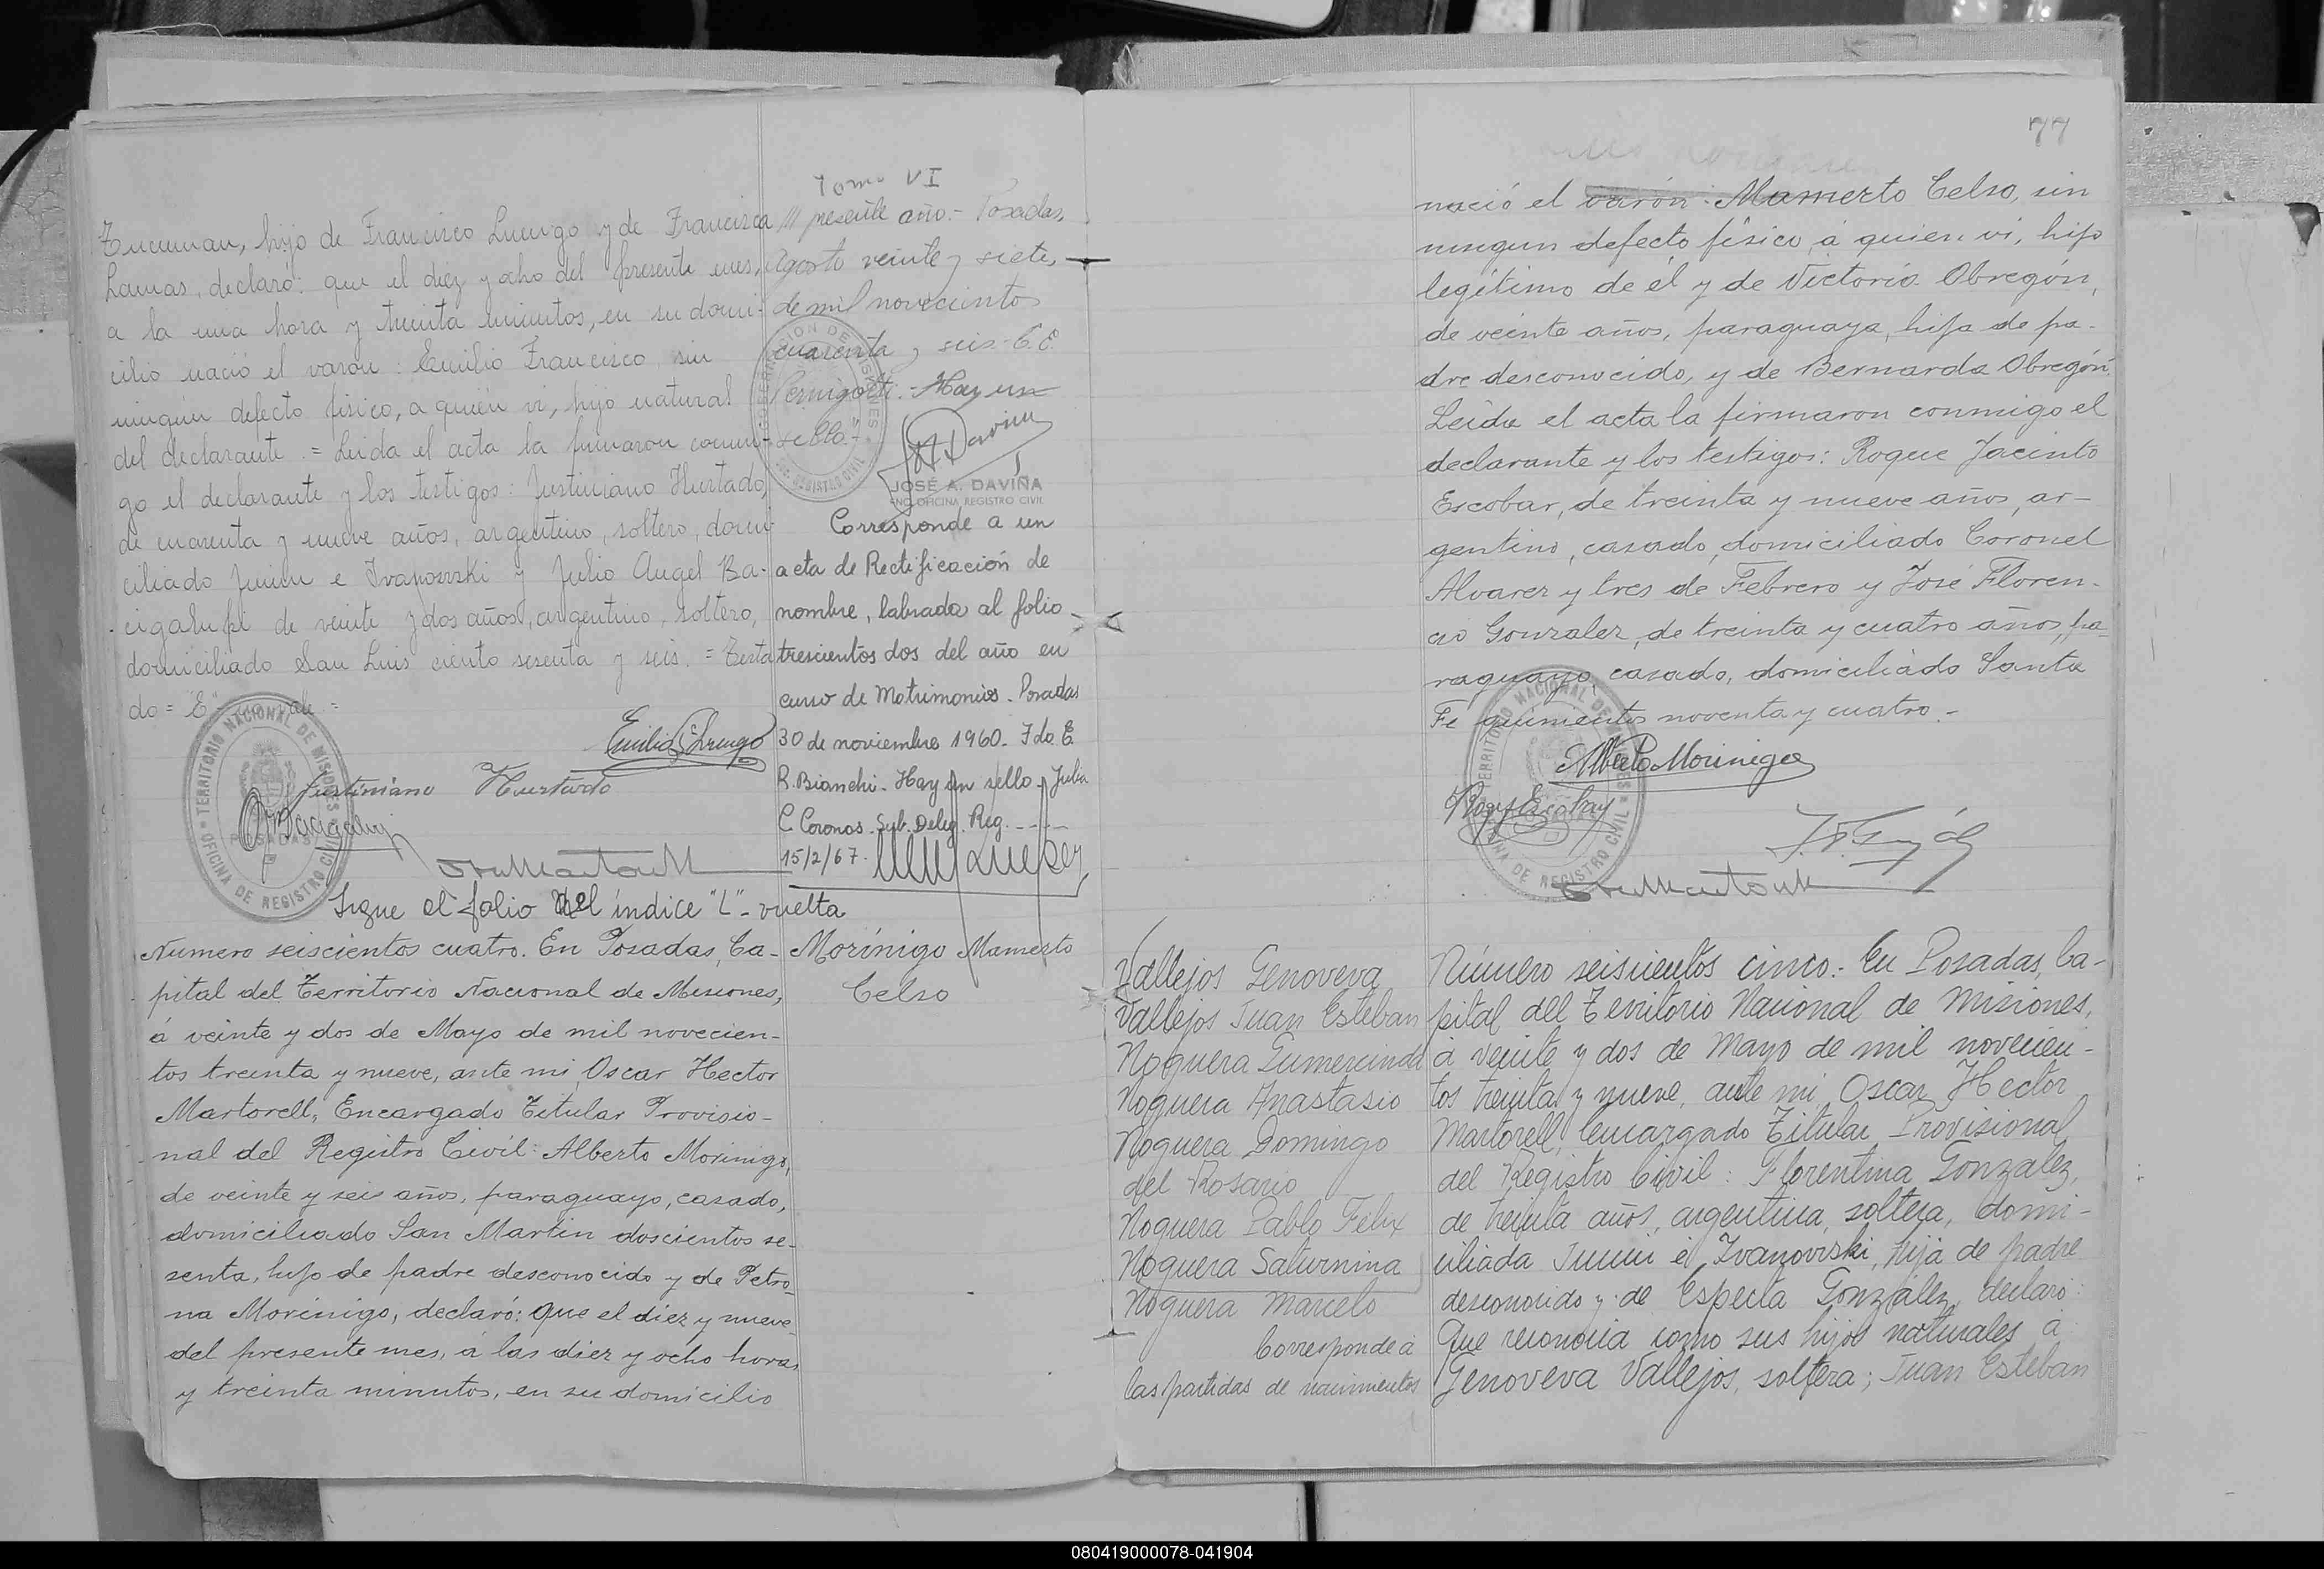 Tucuman, hijo de Francisco Luengo y de Francisca
Lamas, declaró: que el diez y ocho del presente mes,
a la una hora y treinta minutos, en su domi-
cilio nació el varon: Emilio Francisco, sin
ningún defecto físico, a quien vi, hijo natural
del declarante. = Leida el acta la firmaron conmi-
go el declarante y los testigos: Justiniano Hurtado,
de cuarenta y nueve años, argentino, soltero, domi-
ciliado Junin e Ivanowski y Julio Angel Ba-
cigalupi de veinte y dos años, argentino, soltero,
domiciliado San Luis ciento sesenta y seis. = Testa
do = "E" no vale =
Emilio S Luengo
Justiniano Hurtado
TERRITORIO NACIONAL DE MISIONES
POSADAS
OFICINA DE REGISTRO CIVIL
Sigue al folio del índice "L" - vuelta
Tomo VI
/// presente año.- Posadas,
Agosto veinte y siete,
de mil novecientos
cuarenta y seis. C. E.
Pernigotti. - Hay un
sello.-
JOSÉ A. DAVIÑA
ENC. OFICINA REGISTRO CIVIL
Corresponde a un
acta de Rectificación de
nombre, labrada al folio
trescientos dos del año en
curso de Matrimonios. Posadas
30 de noviembre 1960. Fdo E.
R. Bianchi. Hay un sello. Julia
C. Coronas. Sub. Deleg. Reg. ----
15/2/67.
Numero seiscientos cuatro. En Posadas, Ca-
pital del Territorio Nacional de Misiones,
á veinte y dos de Mayo de mil novecien-
tos treinta y nueve, ante mi Oscar Hector
Martorell, Encargado Titular Provisio-
nal del Registro Civil: Alberto Morinigo,
de veinte y seis años, paraguayo, casado,
domiciliado San Martin doscientos se-
senta, hijo de padre desconocido y de Petro-
na Morinigo, declaró: que el diez y nueve
del presente mes, á las diez y ocho horas
y treinta minutos, en su domicilio
Morínigo Mamerto
Celso
77
nació el varón: Mamerto Celso, sin
ningun defecto físico á quien vi, hijo
legítimo de él y de Victoria Obregón,
de veinte años, paraguaya, hija de pa-
dre desconocido, y de Bernarda Obregón.
Leida el acta la firmaron conmigo el
declarante y los testigos: Roque Jacinto
Escobar, de treinta y nueve años, ar-
gentino, casado, domiciliado Coronel
Alvarez y tres de Febrero y José Floren-
cio Gonzalez, de treinta y cuatro años, pa-
raguayo, casado, domiciliado Santa
Fe quinientos noventa y cuatro.-
Alberto Morinigo
TERRITORIO NACIONAL DE MISIONES
OFICINA DE REGISTRO CIVIL
Vallejos Genoveva
Vallejos Juan Esteban
Noguera Gumercinda
Noguera Anastasio
Noguera Domingo
del Rosario
Noguera Pablo Félix
Noguera Saturnina
Noguera Marcelo
Corresponde á
las partidas de nacimientos
Número seiscientos cinco.- En Posadas, Ca-
pital del Territorio Nacional de Misiones,
á veinte y dos de Mayo de mil novecien-
tos treinta y nueve, ante mi Oscar Hector
Martorell, Encargado Titular Provisional
del Registro Civil: Florentina Gonzalez,
de treinta años, argentina, soltera, domi-
ciliada Junin é Ivanovski, hija de padre
desconocido y de Especta González, declaró:
Que reconocia como sus hijos naturales á
Genoveva Vallejos, soltera; Juan Esteban
080419000078-041904